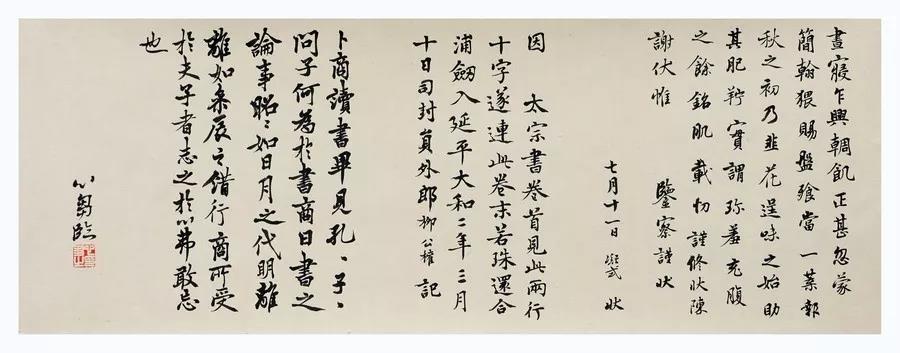 晝寢乍興輖飢正甚忽蒙
簡翰猥賜盤飧當一葉報
秋之初乃韭花逞味之始助
其肥羜實謂珍羞充腹
之餘銘肌載切謹修狀陳
謝伏惟 鑒察謹狀
七月十一日 凝式 狀
因 太宗書卷首見此兩行
十字遂連此卷末若珠還合
浦劒入延平大和二年三月
十日司封員外郎柳公權記
卜商讀書畢見孔〻子〻
問子何為於書商曰書之
論事昭〻如日月之代明離
離如參辰之錯行商所受
於夫子者志之於心弗敢忘
也
心畬臨